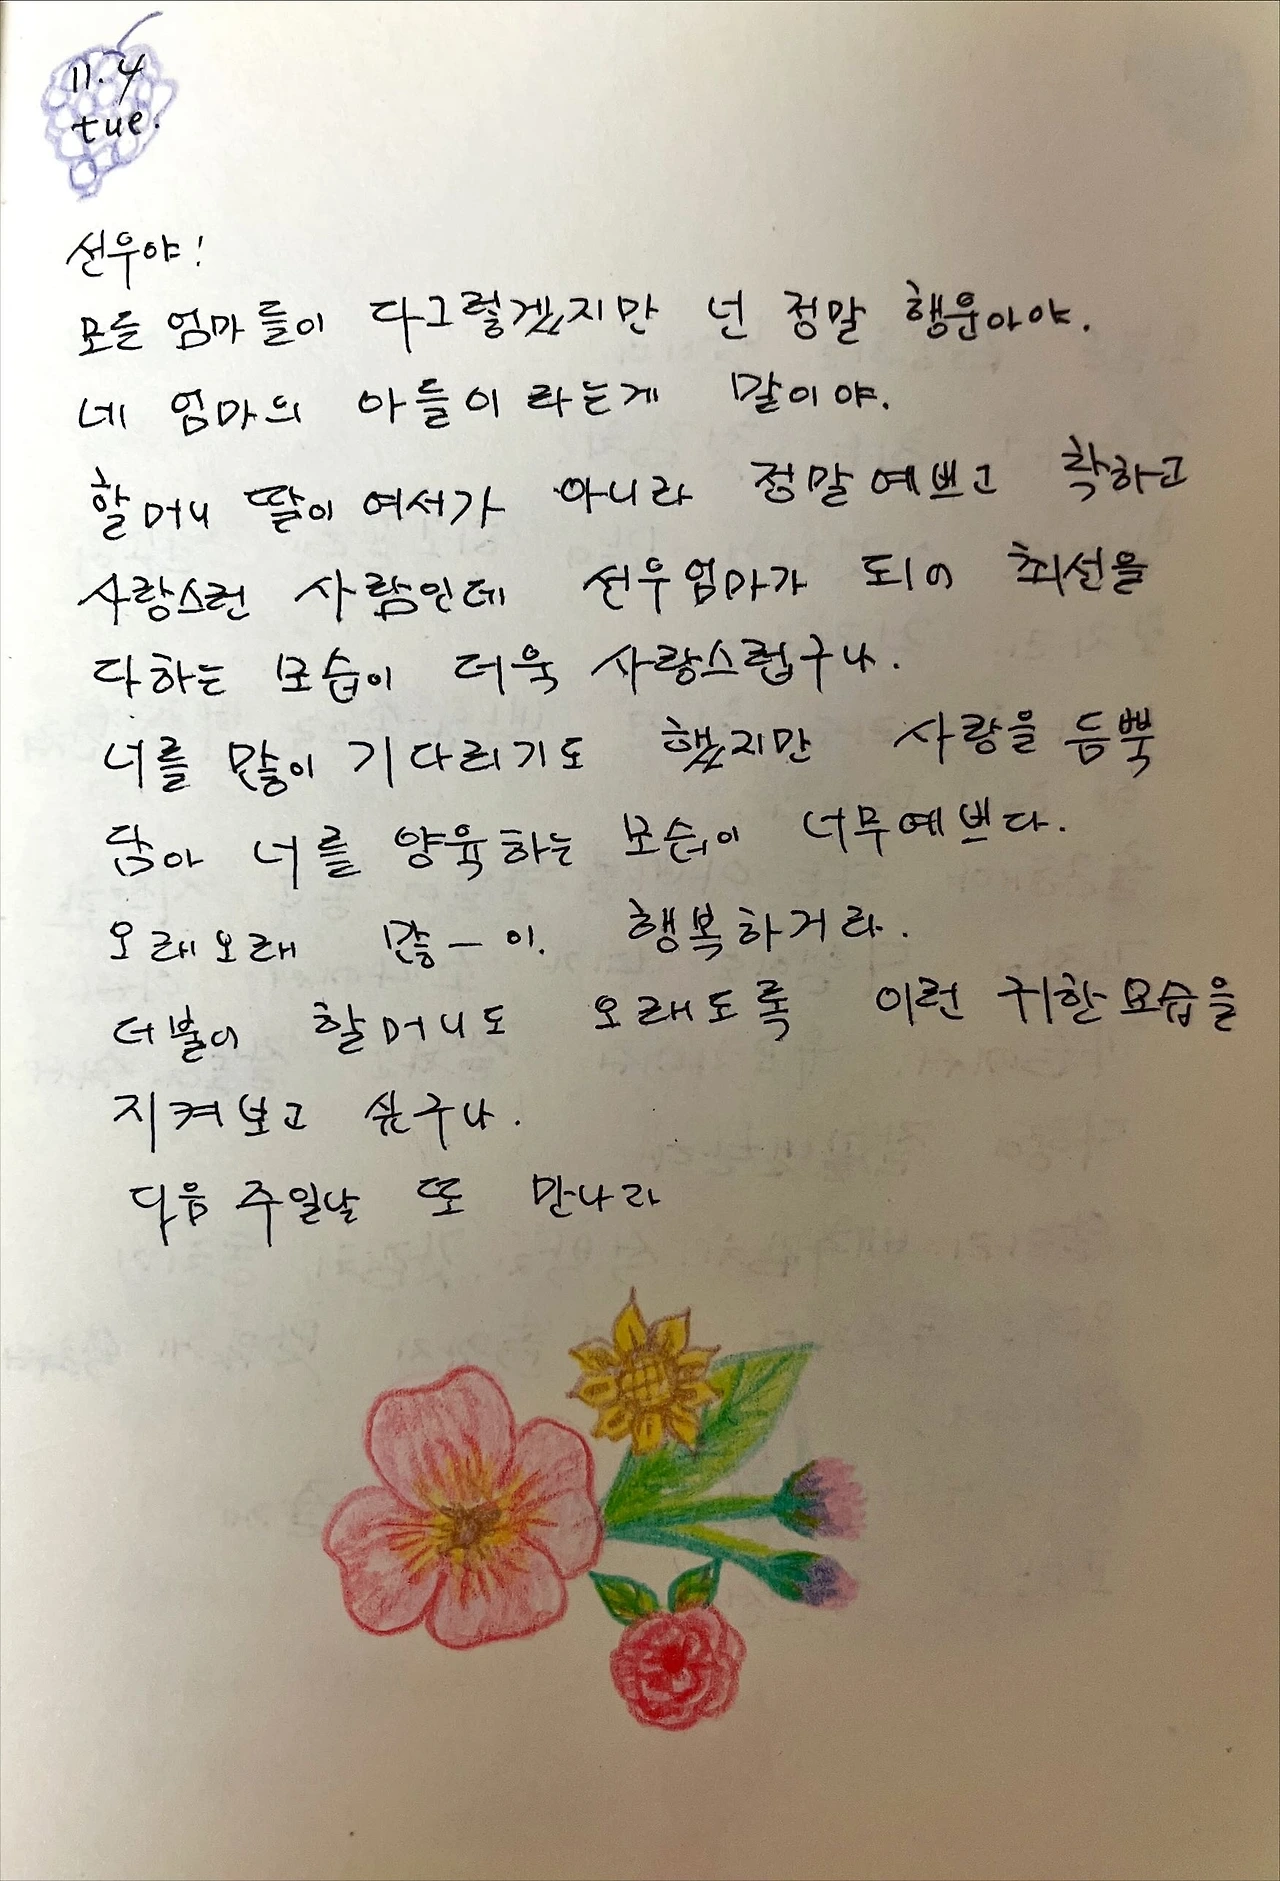 11.4
tue.
선우야!
모든 엄마들이 다그렇겠지만 넌 정말 행운아야.
네 엄마의 아들이라는게 말이야.
할머니 딸이여서가 아니라 정말예쁘고 착하고
사랑스런 사람인데 선우엄마가 되어 최선을
다하는 모습이 더욱 사랑스럽구나.
너를 많이 기다리기도 했지만 사랑을 듬뿍
담아 너를 양육하는 모습이 너무예쁘다.
오래오래 많-이. 행복하거라.
더불어 할머니도 오래도록 이런 귀한모습을
지켜보고 싶구나.
다음 주일날 또 만나라